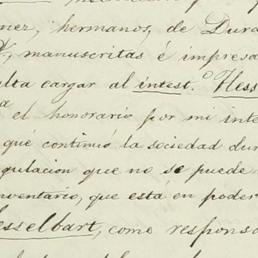 nez, hermanos, de Dura
manuscritas é impresa
ulta cargar al intest.º Hess
el honorario por mi inte
qué continuó la sociedad dur
gulacion que no se puede
nventario, que está en poder
esselbart, como responsa